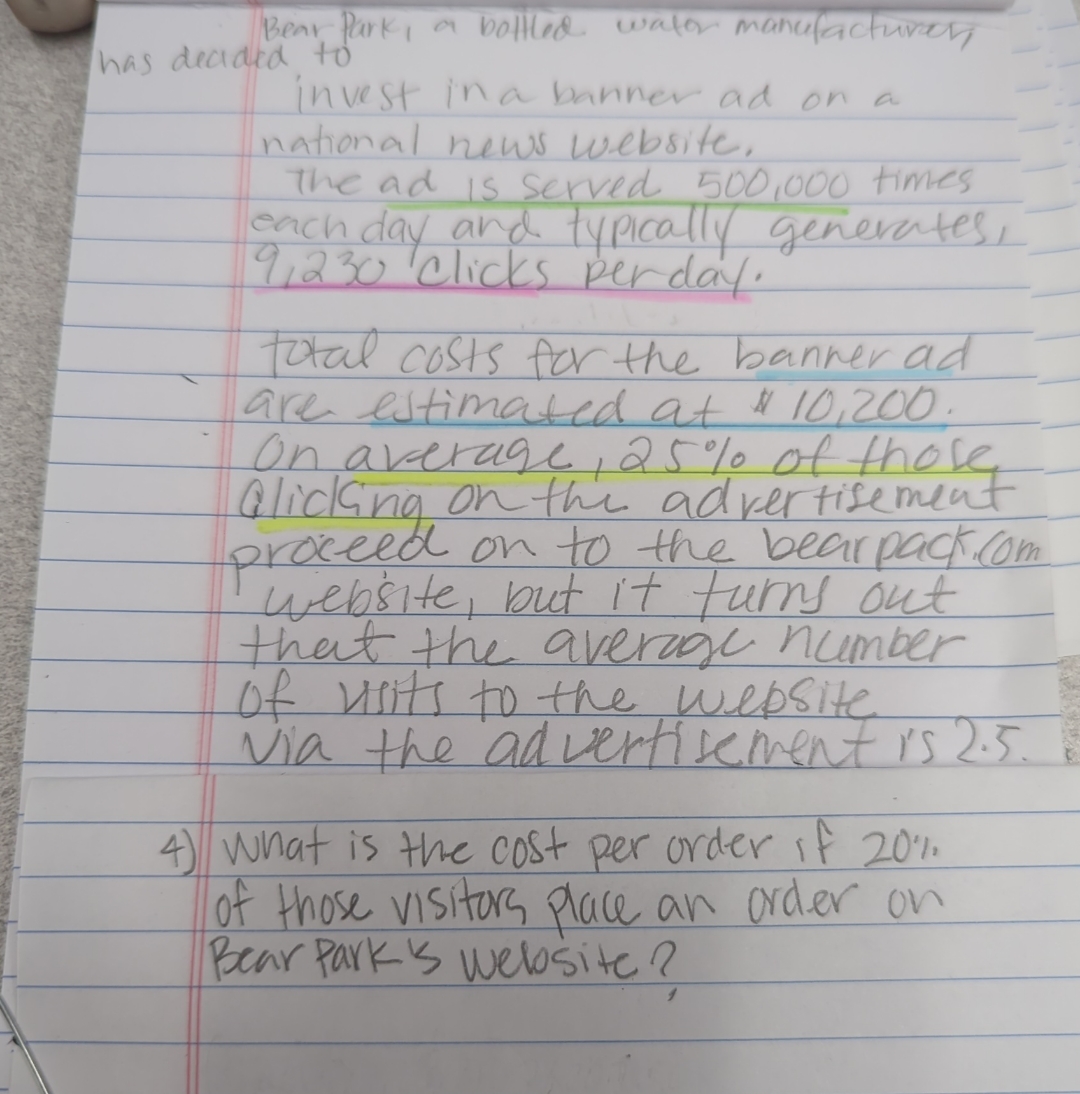 Bear Park, a bottled water manufacturer,
has decided to
invest in a banner ad on a
national news website.
The ad is served 500,000 times
each day and typically generates,
9,230 clicks per day.
total costs for the banner ad
are estimated at $10,200.
On average, 25% of those
clicking on the advertisement
proceed on to the bearpack.com
website, but it turns out
that the average number
of visits to the website
via the advertisement is 2.5.
4) What is the cost per order if 20%
of those visitors place an order on
Bear Park's website?